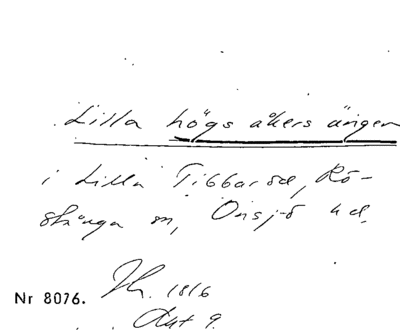 Lilla högs åkers ängen
i Lilla Tibbaröd, Rö-
stånga sn, Onsjö hd.
Nr 8076. 1816
Akt 9.